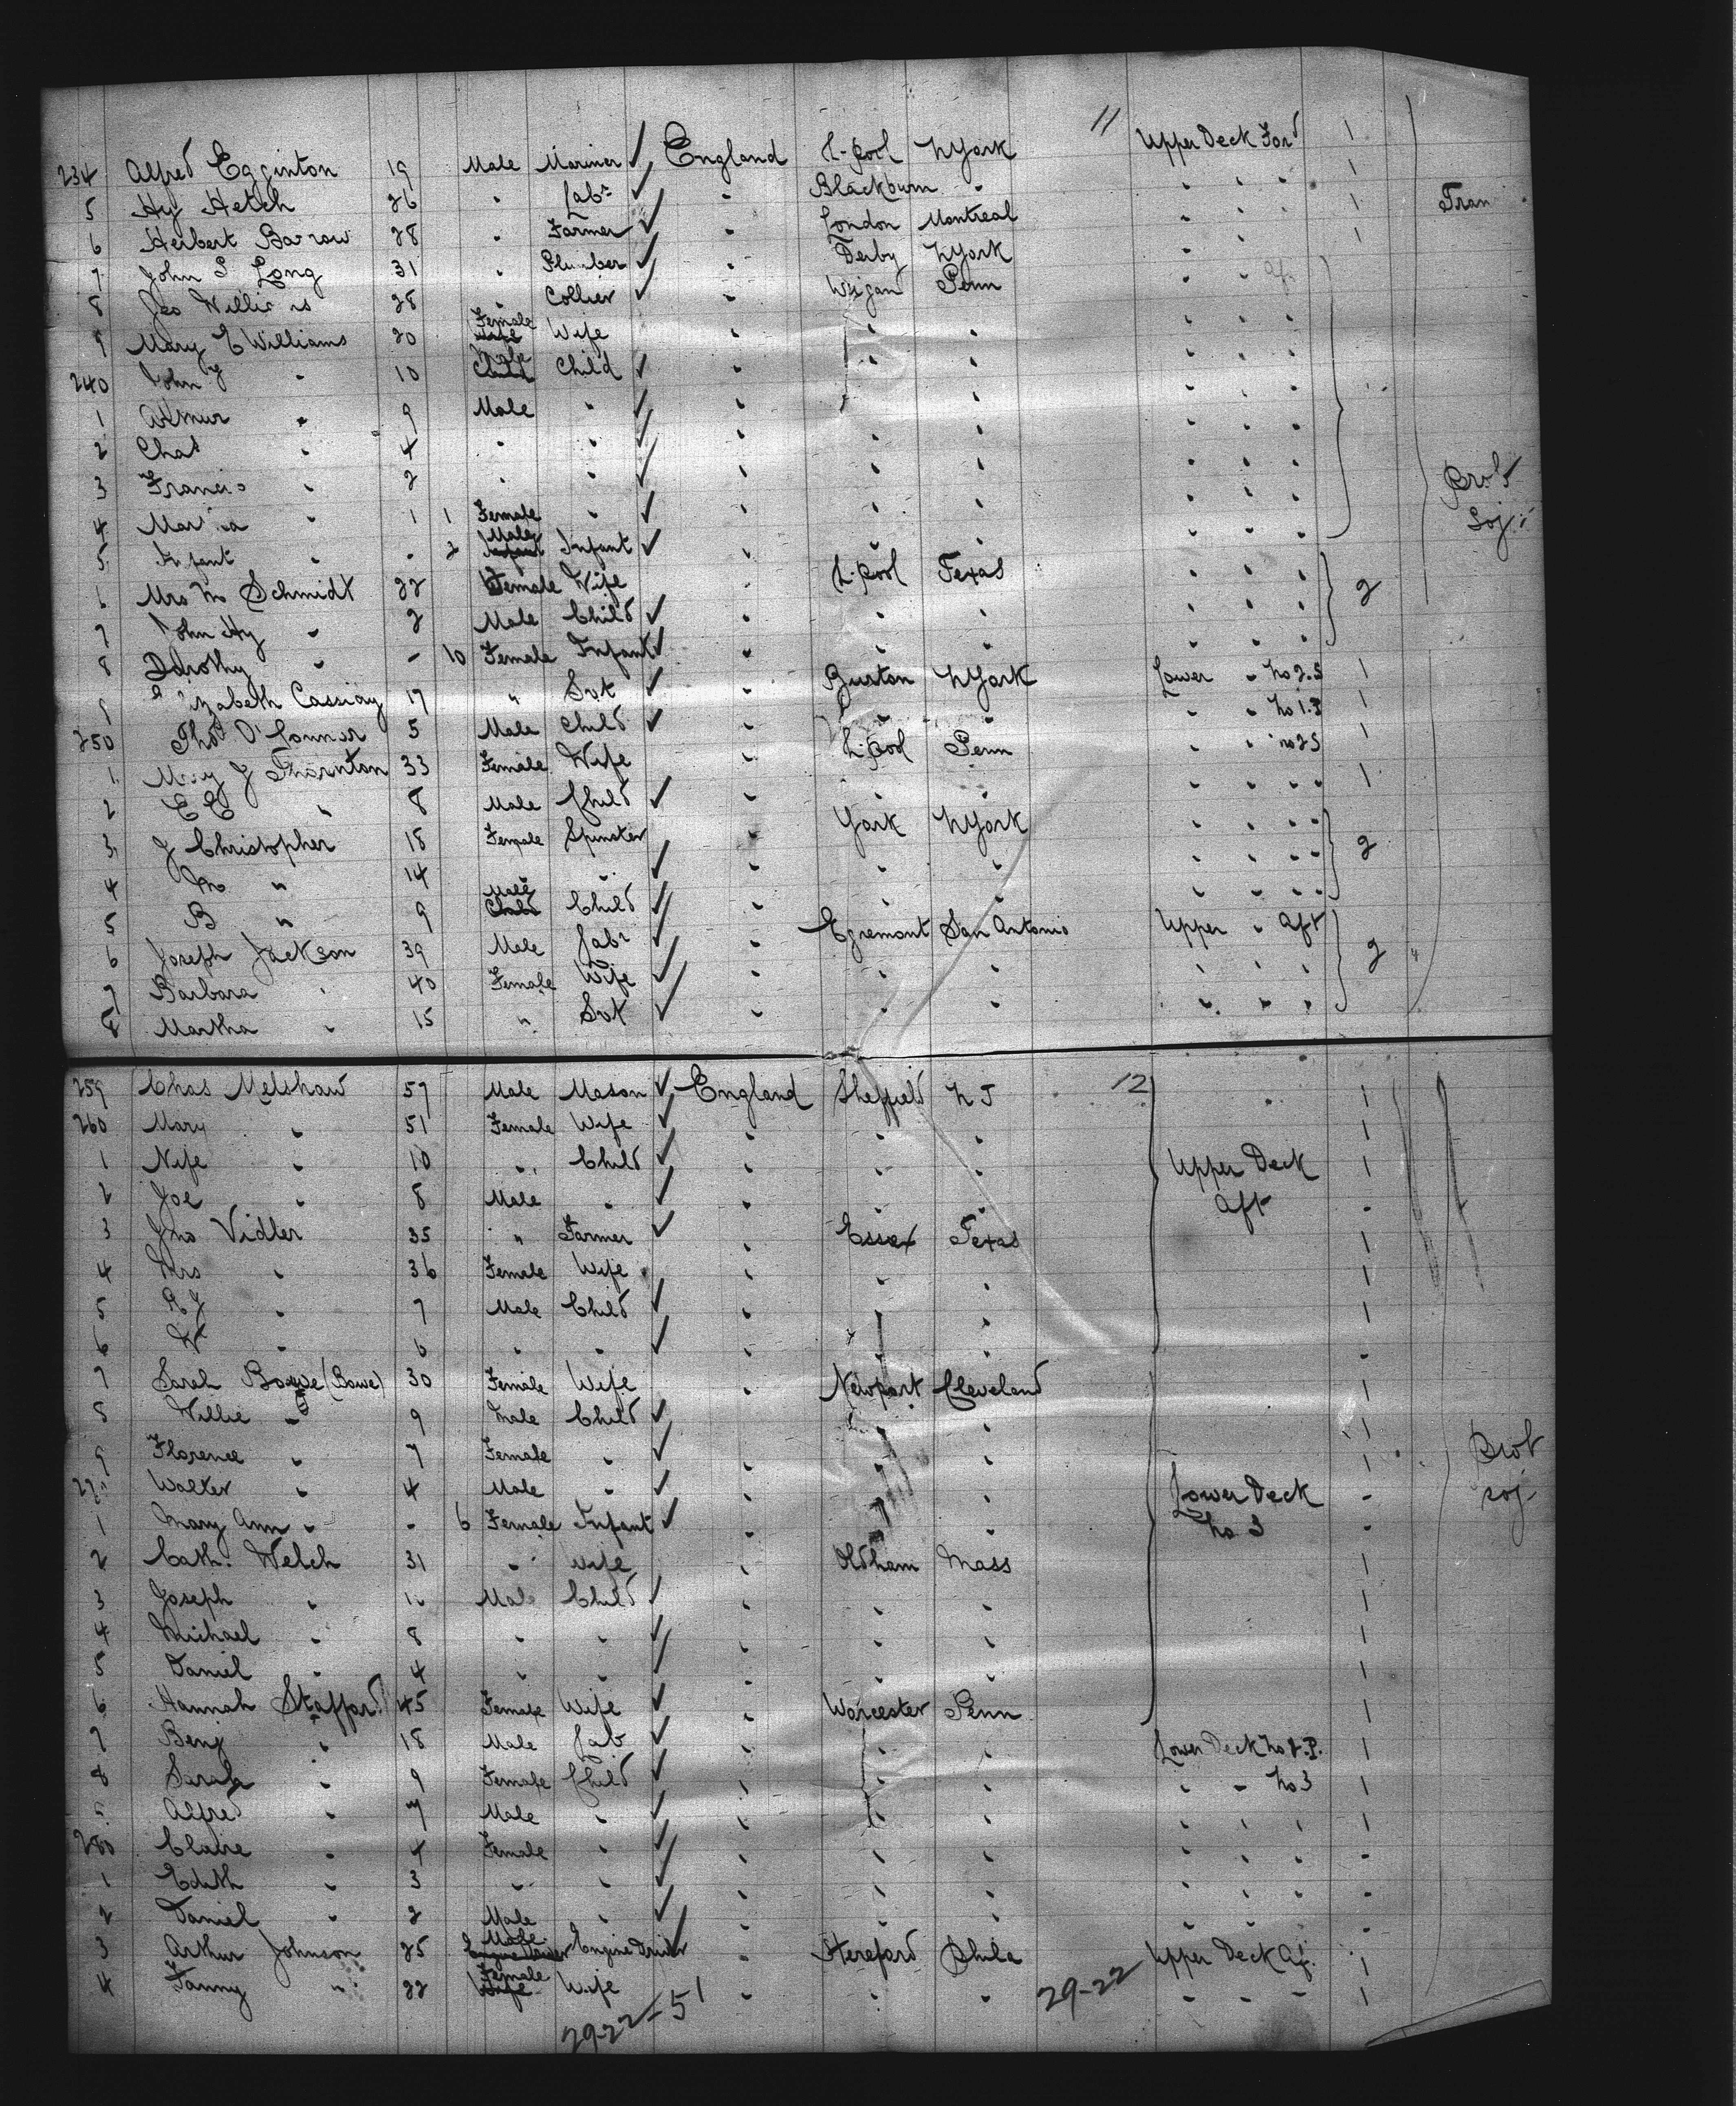 11
234 Alfred Egginton 19 Male Mariner ✓ England L-pool N York Upper Deck For'd 1
5 Hy Hetch 26 " Labr ✓ " Blackburn " " " " 1
6 Herbert Barrow 28 " Farmer ✓ " London Montreal " " " 1 Tran
7 John S Long 31 " Plumber ✓ " Derby N York " " 1
8 Geo 28 " Collier ✓ " Wigan Penn " "
9 Mary E Williams 20 Female Wife " " " " " "
240 John " 10 Male Child ✓ " " " " " "
1 Arthur " 9 Male " ✓ " " " " " "
2 Chas " 4 " " ✓ " " " " " "
3 Francis " 2 " " ✓ " " " " " " Brot
4 " 1 1 Female " ✓ " " " " " " Soj:
5 Infant " - 2 Male Infant ✓ " " " " " "
6 Mrs M Schmidt 22 Female Wife " L-pool Texas " " " 2
7 John Hy " 2 Male Child ✓ " " " " " "
8 Dorothy " - 10 Female Infant ✓ " " " " " "
9 Elizabeth Cassidy 17 " Svt ✓ " Burton N York Lower " No 2.S 1
250 Thos O'Connor 5 Male Child ✓ " " " " " No 1.P 1
1 Mary J Thornton 33 Female Wife " L-pool Penn " " No 2 S 1
2 E E " 8 Male Child ✓ " " " " " " 1
3 J Christopher 18 Female Spinster " York N York " " " 2
4 M " 14 " ✓ " " " " " "
5 B " 9 Male Child ✓ " " " " " "
6 Joseph Jackson 39 Male Labr ✓ " Egremont San Antonio Upper " Aft 2
7 Barbara " 40 Female Wife ✓ " " " " " "
8 Martha " 15 " Svt ✓ " " " " " "
12
259 Chas Melshaw 57 Male Mason ✓ England Sheffield N J 1
260 Mary " 51 Female Wife ✓ " " " 1
1 " 10 " Child ✓ " " " Upper Deck 1
2 Joe " 8 Male " ✓ " " " Aft -
3 Jno Vidler 35 " Farmer ✓ " Essex Texas 1
4 Mrs " 36 Female Wife " " " 1
5 " 7 Male Child ✓ " " " 1
6 W " 6 " " ✓ " " " -
7 Sarah Bowe (Bowe) 30 Female Wife " Newport Cleveland 1
8 Willie " 9 Male Child ✓ " " " 1
9 Florence " 7 Female " ✓ " " " 1 Brot
Walter " 4 Male " ✓ " " " Lower Deck - soj-
1 Mary Ann " - 6 Female Infant ✓ " " " No 3 -
2 Cath. Welch 31 " Wife " Oldham Mass 1
3 Joseph " Male Child ✓ " " " 1
4 Michael " 8 " " ✓ " " " 1
5 Daniel " 4 " " " " " 1
6 Hannah Stafford 45 Female Wife ✓ " Worcester Penn 1
7 Benj " 18 Male Lab ✓ " " " Lower Deck No 1.P. 1
8 Sarah " 9 Female Child ✓ " " " " " No 3 1
9 Alfred " 7 Male " ✓ " " " " " " 1
280 Claire " 4 Female " ✓ " " " " " " -
1 Edith " 3 " " ✓ " " " " " " -
2 Daniel " 2 Male " ✓ " " " " " " -
3 Arthur Johnson 25 Male Engine Driver ✓ " Hereford Phila Upper Deck Af. 1
4 Fanny " 22 Female Wife " " " " " " 1
29-22-51 29-22